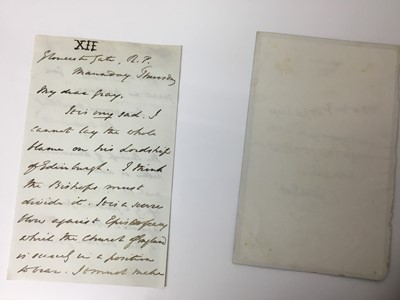 XII
Gloucester Gate, R.P.
Maunday Thursday
My dear Gray,
It is very sad. I
cannot lay the whole
blame on his Lordship
of Edinburgh. I think
the Bishops must
divide it. It is a severe
blow against Episcopacy
which the Church of England
is scarcely in a position
to bear. It must make